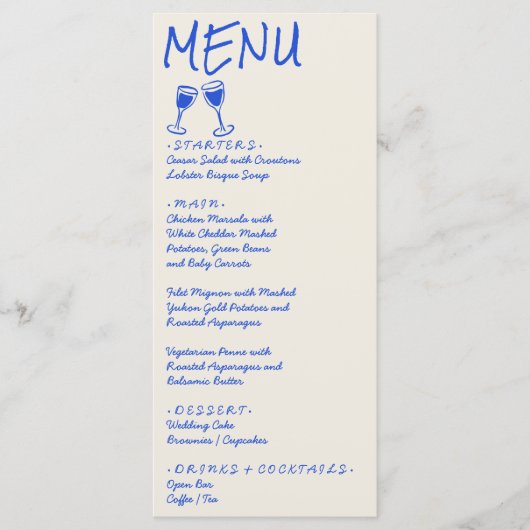 MENU
• STARTERS •
Ceasar Salad with Croutons
Lobster Bisque Soup
• MAIN •
Chicken Marsala with
White Cheddar Mashed
Potatoes, Green Beans
and Baby Carrots
Filet Mignon with Mashed
Yukon Gold Potatoes and
Roasted Asparagus
Vegetarian Penne with
Roasted Asparagus and
Balsamic Butter
• DESSERT •
Wedding Cake
Brownies / Cupcakes
• DRINKS + COCKTAILS •
Open Bar
Coffee / Tea